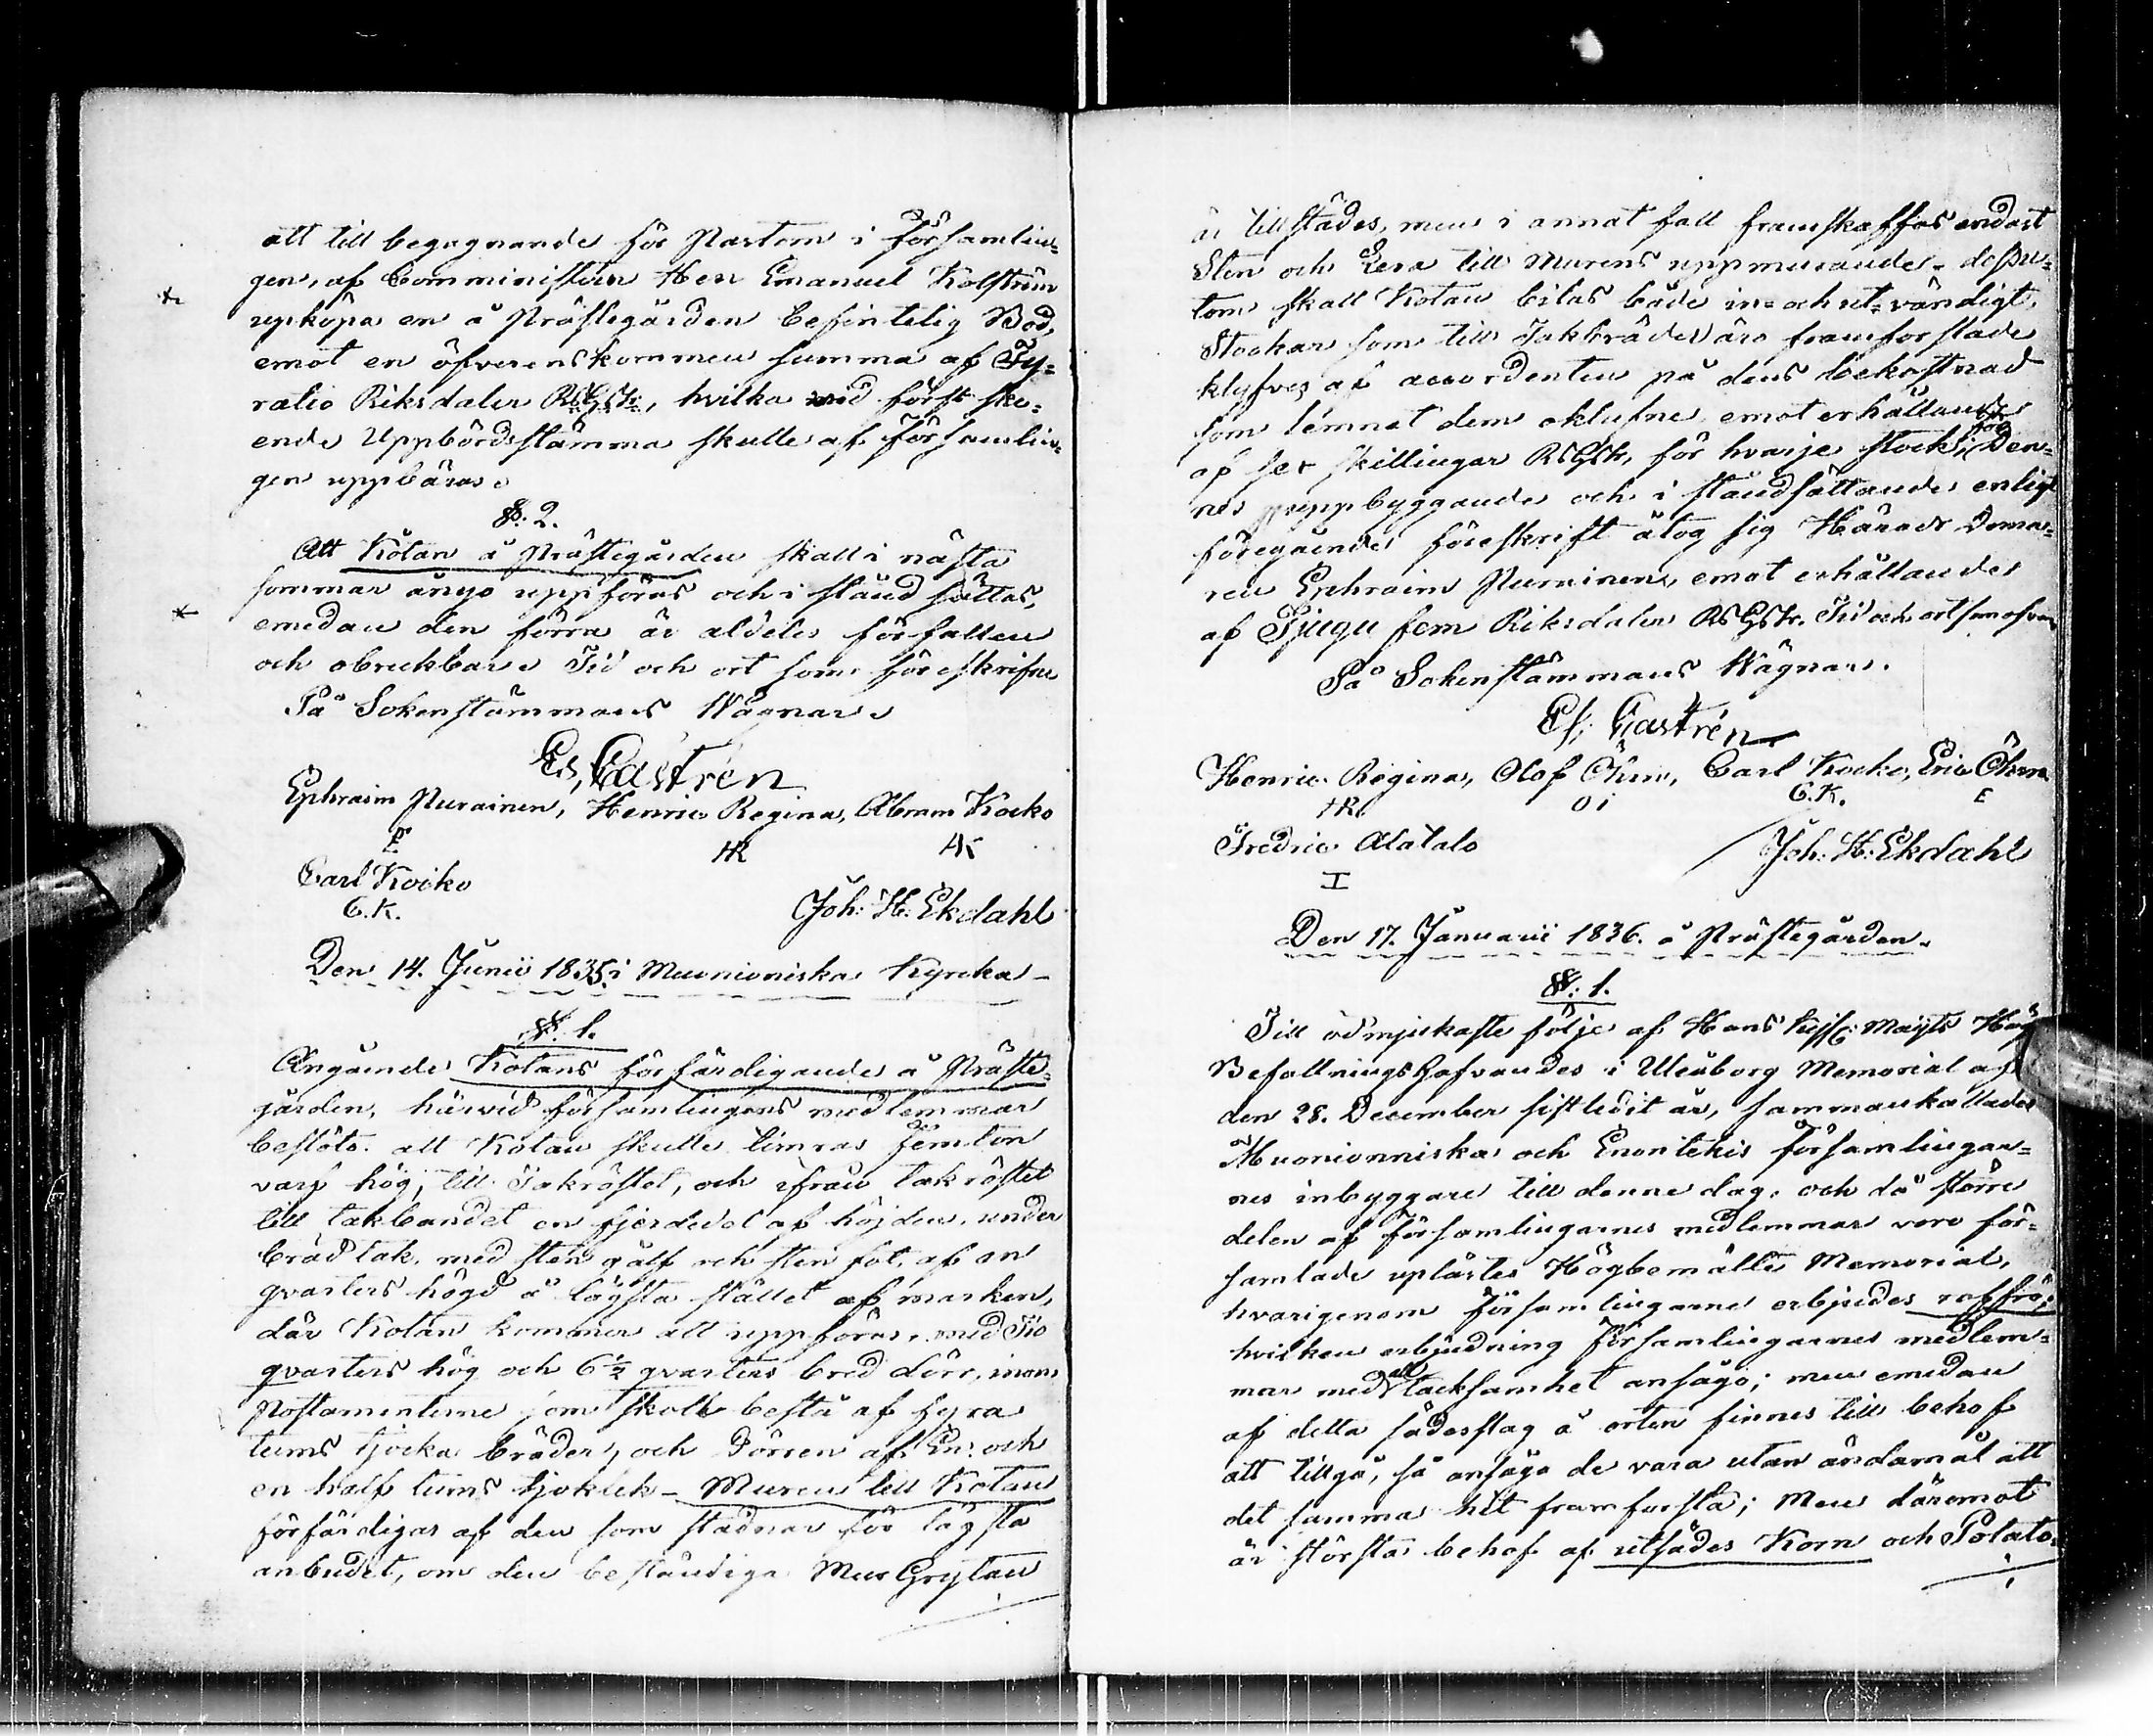 att till begagnande för Pastorn i Församlin=
gen, af Comministern Herr Emanuel Kolström
upköpa en å Prästegården befintelig Bod,
emot en öfverenskommen summa af Fy=
ratio Riksdaler RsGsk:, hvilka vid först ske=
ende Uppbördsstämma skulle af Församlin=
gen uppbäras.
§: 2.
Att Kotan å Prästegården skall i nästa
sommar ånyo uppföras och i stånd sättas,
emedan den förra är aldeles förfallen
och obrukbar. Tid och ort som föreskrifne
På Sokenstämmans Wägnar.
Es, Castrén
Ephraim Purainen, Henric Regina, Abram Kocko
E HR AK
Carl Kocko
C.K.
Joh: H: Ekdahl
Den 14. Junii 1835. i Muonioniska Kyrcka -
§. 1.
Angående Kotans förfärdigande å Präste=
gården, härvid församlingens medlemmar
beslöto att Kotan skulle timras femton
varf hög, till Takröstet, och ifrån takröstet
till takbandet en fjerdedel af höjden, under
bräd tak, med sten gålf och sten fot, af en
qvarters högd å lägsta stället af marken,
där Kotan kommer att uppföras, med Tio
qvarters hög och 6 1/2 qvarters bred dörr, inom
Postamenterne som skall bestå af fyra
tums tjocka bräder, och Dörren af En och
en half tums tjoklek - Muren till Kotan
förfärdigas af den som stadnar för lägsta
anbudet, om den beständiga Mur Grytan
är tillstädes, men i annat fall framskaffas endast
Sten och Lera till murens uppmurande - dessu=
tom skall Kotan bilas både in= och ut=vändigt.
Stockar som till Takbräder äro framforslade
klyfves af accordenten på dens bekostnad
som lemnat dem oklufne, emot erhållande
af sex skillingar RsGsk, för hvarje stock; för Den=
nes uppbyggande och i ståndsättande enligt
föregående föreskrift åtog sig Härads Doma=
ren Ephraim Purainen, emot erhållande
af Tjugu fem Riksdaler RsGsk. Tid och ort som ofvan
På Sokenstämmans Wägnar.
Es; Castrén
Henric Regina, Olof Öhrn, Carl Kocko, Eric Öhrn
HR. O i C.K. E
Fredric Alatalo
I
Joh: H: Ekdahl
Den 17. Januarii 1836. å Prästegården.
§: 1.
Till ödmjukaste följe af Hans Kejsl: Maijts
Befallningshafvandes i Uleåborg Memorial af
den 28. December sistledit år, sammankallades
Muonionniska och Enontekis församlingar=
nes inbyggare till denne dag, och då större
delen af Församlingarnes medlemmar voro för=
samlade uplästes Högbemälte Memorial,
hvarigenom Församlingarne erbjudes rågfrö;
hvilken erbjudning Församlingarnes medlem=
mar med all tacksamhet ansågo; men emedan
af detta sädesslag å orten finnes till behof
att tillgå, så ansågo de vara utan ändamål att
det samma hit framforsla; Men däremot
är största behof af utsädes Korn och Potato=